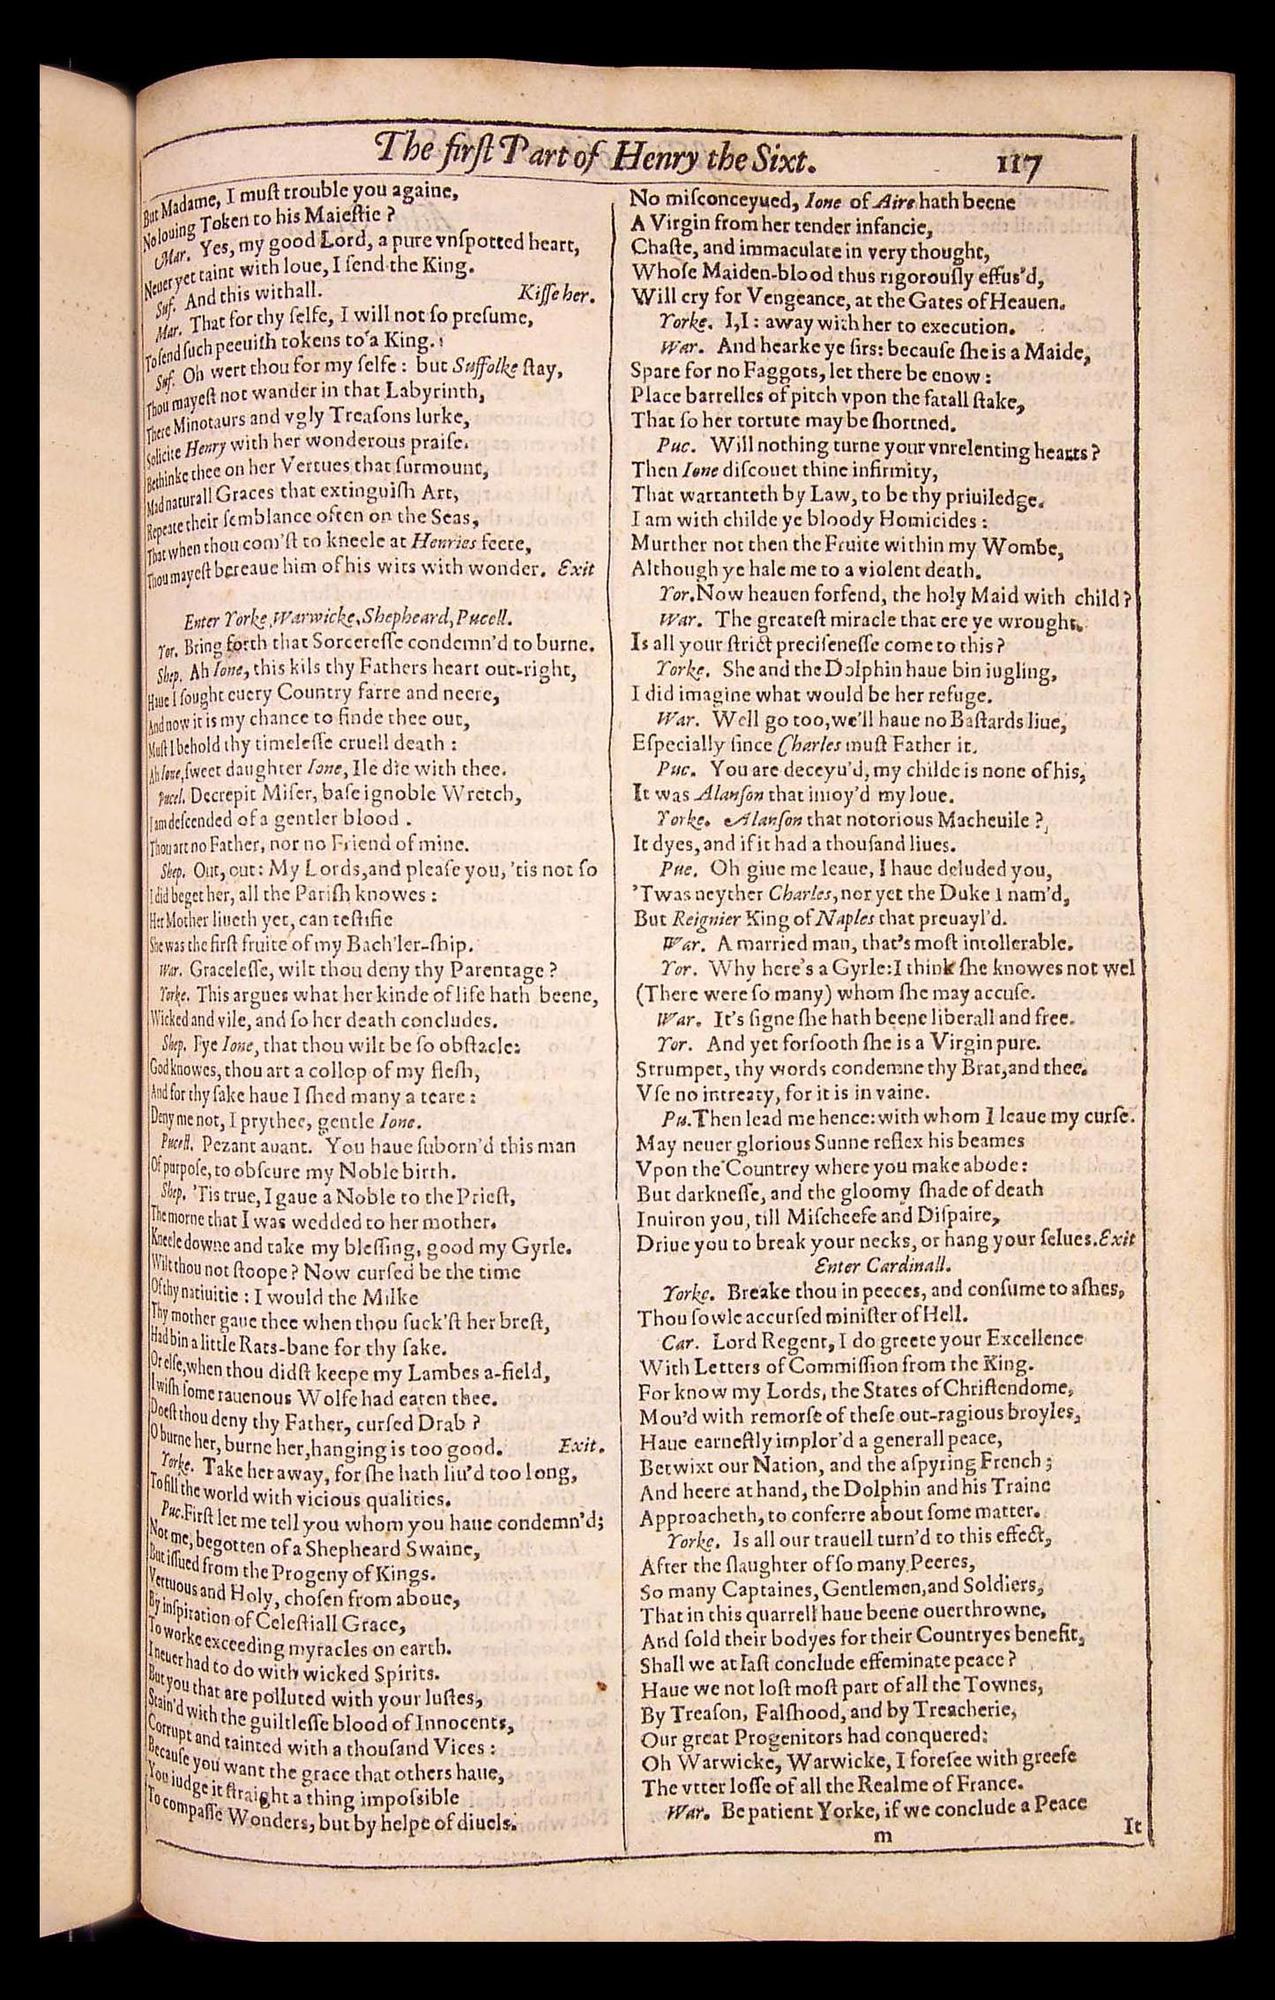 The first Part of Henry the Sixt. 117
But Madame, I must trouble you againe,
No louing Token to his Maiestie?
Mar. Yes, my good Lord, a pure vnspotted heart,
Neuer yet taint with loue, I send the King.
Suf. And this withall. Kisse her.
Mar. That for thy selfe, I will not so presume,
To send such peeuish tokens to a King.
Suf. Oh wert thou for my selfe: but Suffolke stay,
Thou mayest not wander in that Labyrinth,
There Minotaurs and vgly Treasons lurke,
Solicite Henry with her wonderous praise.
Bethinke thee on her Vertues that surmount,
Mad naturall Graces that extinguish Art,
Repeate their semblance often on the Seas,
That when thou com'st to kneele at Henries feete,
Thou mayest bereaue him of his wits with wonder. Exit
Enter Yorke, Warwicke, Shepheard, Pucell.
Yor. Bring forth that Sorceresse condemn'd to burne.
Shep. Ah Ione, this kils thy Fathers heart out-right,
Haue I sought euery Country farre and neere,
And now it is my chance to finde thee out,
Must I behold thy timelesse cruell death:
Ah Ione, sweet daughter Ione, Ile die with thee.
Pucel. Decrepit Miser, base ignoble Wretch,
I am descended of a gentler blood.
Thou art no Father, nor no Friend of mine.
Shep. Out, out: My Lords, and please you, 'tis not so
I did beget her, all the Parish knowes:
Her Mother liueth yet, can testifie
She was the first fruite of my Bach'ler-ship.
War. Gracelesse, wilt thou deny thy Parentage?
Yorke. This argues what her kinde of life hath beene,
Wicked and vile, and so her death concludes.
Shep. Fye Ione, that thou wilt be so obstacle:
God knowes, thou art a collop of my flesh,
And for thy sake haue I shed many a teare:
Deny me not, I prythee, gentle Ione.
Pucell. Pezant auant. You haue suborn'd this man
Of purpose, to obscure my Noble birth.
Shep. 'Tis true, I gaue a Noble to the Priest,
The morne that I was wedded to her mother.
Kneele downe and take my blessing, good my Gyrle.
Wilt thou not stoope? Now cursed be the time
Of thy natiuitie: I would the Milke
Thy mother gaue thee when thou suck'st her brest,
Had bin a little Rats-bane for thy sake.
Or else, when thou didst keepe my Lambes a-field,
I wish some rauenous Wolfe had eaten thee.
Doest thou deny thy Father, cursed Drab?
O burne her, burne her, hanging is too good. Exit.
Yorke. Take her away, for she hath liu'd too long,
To fill the world with vicious qualities.
Puc. First let me tell you whom you haue condemn'd;
Not me, begotten of a Shepheard Swaine,
But issued from the Progeny of Kings.
Vertuous and Holy, chosen from aboue,
By inspiration of Celestiall Grace,
To worke exceeding myracles on earth.
I neuer had to do with wicked Spirits.
But you that are polluted with your lustes,
Stain'd with the guiltlesse blood of Innocents,
Corrupt and tainted with a thousand Vices:
Because you want the grace that others haue,
You iudge it straight a thing impossible
To compasse Wonders, but by helpe of diuels.
No misconceyued, Ione of Aire hath beene
A Virgin from her tender infancie,
Chaste, and immaculate in very thought,
Whose Maiden-blood thus rigorously effus'd,
Will cry for Vengeance, at the Gates of Heauen.
Yorke. I, I: away with her to execution.
War. And hearke ye sirs: because she is a Maide,
Spare for no Faggots, let there be enow:
Place barrelles of pitch vpon the fatall stake,
That so her torture may be shortned.
Puc. Will nothing turne your vnrelenting hearts?
Then Ione discouet thine infirmity,
That warranteth by Law, to be thy priuiledge.
I am with childe ye bloody Homicides:
Murther not then the Fruite within my Wombe,
Although ye hale me to a violent death.
Yor. Now heauen forfend, the holy Maid with child?
War. The greatest miracle that ere ye wrought.
Is all your strict precisenesse come to this?
Yorke. She and the Dolphin haue bin iugling,
I did imagine what would be her refuge.
War. Well go too, we'll haue no Bastards liue,
Especially since Charles must Father it.
Puc. You are deceyu'd, my childe is none of his,
It was Alanson that inioy'd my loue.
Yorke. Alanson that notorious Macheuile?
It dyes, and if it had a thousand liues.
Puc. Oh giue me leaue, I haue deluded you,
'Twas neyther Charles, nor yet the Duke I nam'd,
But Reignier King of Naples that preuayl'd.
War. A married man, that's most intollerable.
Yor. Why here's a Gyrle: I think she knowes not wel
(There were so many) whom she may accuse.
War. It's signe she hath beene liberall and free.
Yor. And yet forsooth she is a Virgin pure.
Strumpet, thy words condemne thy Brat, and thee.
Vse no intreaty, for it is in vaine.
Pu. Then lead me hence: with whom I leaue my curse.
May neuer glorious Sunne reflex his beames
Vpon the Countrey where you make abode:
But darknesse, and the gloomy shade of death
Inuiron you, till Mischeefe and Dispaire,
Driue you to break your necks, or hang your selues. Exit
Enter Cardinall.
Yorke. Breake thou in peeces, and consume to ashes,
Thou fowle accursed minister of Hell.
Car. Lord Regent, I do greete your Excellence
With Letters of Commission from the King.
For know my Lords, the States of Christendome,
Mou'd with remorse of these out-ragious broyles,
Haue earnestly implor'd a generall peace,
Betwixt our Nation, and the aspyring French;
And heere at hand, the Dolphin and his Traine
Approacheth, to conferre about some matter.
Yorke. Is all our trauell turn'd to this effect,
After the slaughter of so many Peeres,
So many Captaines, Gentlemen, and Soldiers,
That in this quarrell haue beene ouerthrowne,
And sold their bodyes for their Countryes benefit,
Shall we at last conclude effeminate peace?
Haue we not lost most part of all the Townes,
By Treason, Falshood, and by Treacherie,
Our great Progenitors had conquered:
Oh Warwicke, Warwicke, I foresee with greefe
The vtter losse of all the Realme of France.
War. Be patient Yorke, if we conclude a Peace
m It